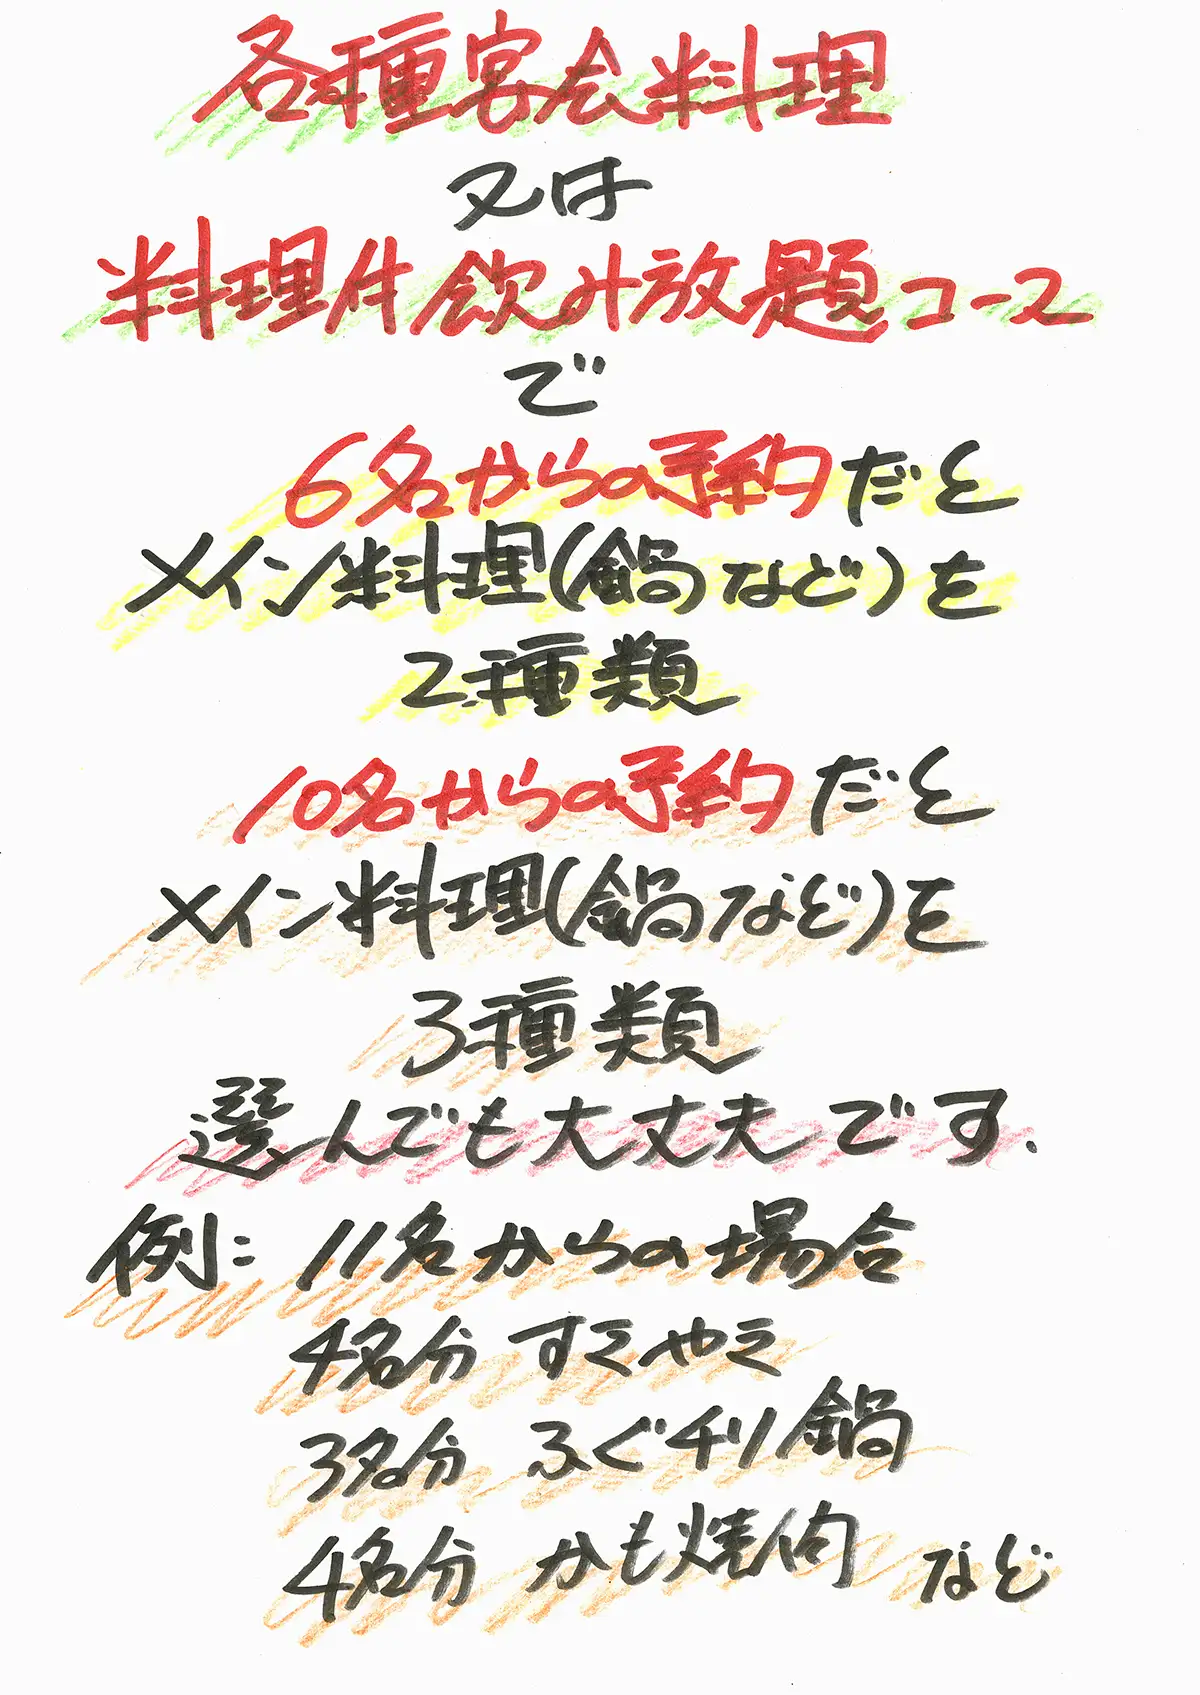 各種宴会料理
又は
料理付飲み放題コース
で
6名からの予約だと
メイン料理(鍋など)を
2種類
10名からの予約だと
メイン料理(鍋など)を
3種類
選んでも大丈夫です.
例: 11名からの場合
4名分 すきやき
3名分 ふぐチリ鍋
4名分 かも焼肉 など